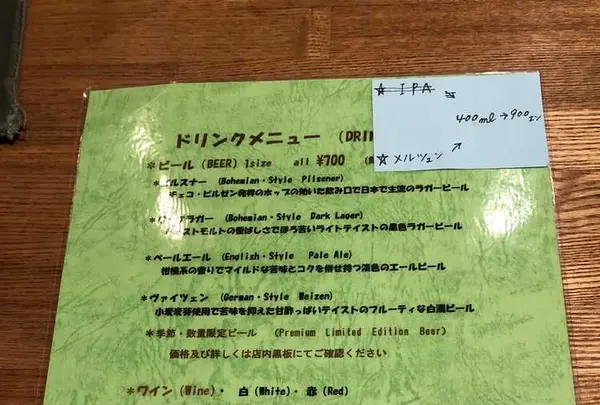 ☆ IPA
400ml→900エン
☆ メルツェン
ドリンクメニュー (DRIN
*ビール (BEER) 1size all ¥700
ルスナー (Bohemian・Style Pilsener)
チェコ・ピルゼン発祥のホップの効いた飲み口で日本で主流のラガービール
ラガー (Bohemian・Style Dark Lager)
ストモルトの香ばしさでほろ苦いライトテイストの黒色ラガービール
*ペールエール (English・Style Pale Ale)
柑橘系の香りでマイルドな苦味とコクを併せ持つ淡色のエールビール
*ヴァイツェン (German・Style Weizen)
小麦麦芽使用で苦味を抑えた甘酸っぱいテイストのフルーティな白濁ビール
*季節・数量限定ビール (Premium Limited Edition Beer)
価格及び詳しくは店内黒板にてご確認ください
*ワイン (Wine)・ 白 (White)・ 赤 (Red)